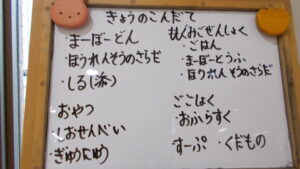 きょうのこんだて
まーぼーどん
・ほうれんそうのさらだ
・しる(添)
おやつ
・しおせんべい
・ぎゅうにゅう
・ごはん
・まーぼーとうふ
・ほうれんそうのさらだ
ごごしょく
・おふらすく
すーぷ・くだもの